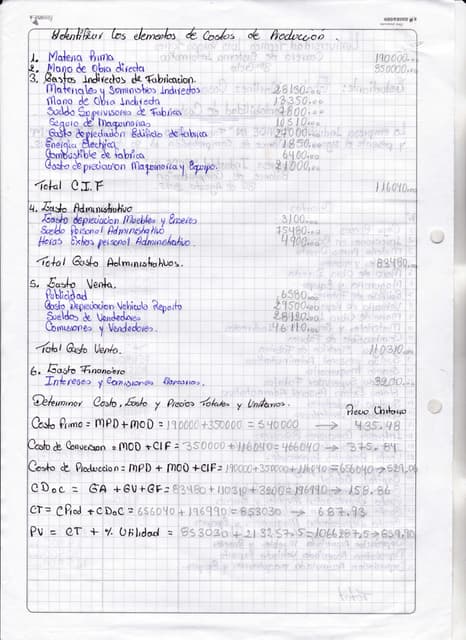 Identificar los elementos de Costos de Producción.
1. Materia Prima 190000.00
2. Mano de Obra directa 350000.00
3. Gastos Indirectos de Fabricacion.
Materiales y Suministros Indirectos 28130.00
Mano de Obra Indirecta 13350.00
Sueldo Supervisores de Fabrica 4800.00
Seguro de Maquinarias 10510.00
Gasto depreciación Edificio de fabrica 27000.00
Energia Electrica 1850.00
Combustible de fabrica 6400.00
Gasto depreciacion Maquinaria y Equipo. 21000.00
Total C.I.F 116040.00
4. Gasto Administrativo
Gasto depreciacion Muebles y Enseres 3100.00
Sueldo Personal Administrativo 75480.00
Horas Extras personal Administrativo. 4900.00
Total Gasto Administrativos. 83480.00
5. Gasto Venta.
Publicidad 6580.00
Gasto Depreciacion Vehiculo Reparto 29500.00
Sueldos de Vendedores 28120.00
Comisiones y Vendedores. 46110.00
Total Gasto Venta. 110310.00
6. Gasto Financiero
Intereses y Comisiones Bancarios. 3200.00
Determinar Costo, Gasto y Precios Totales y Unitarios.
Precio Unitario
Costo Primo = MPD + MOD = 190000 + 350000 = 540000 → 435.48
Costo de Conversion = MOD + CIF = 350000 + 116040 = 466040 → 375.84
Costo de Produccion = MPD + MOD + CIF = 190000 + 350000 + 116040 = 656040 → 529.06
CDoc = GA + GV + GF = 83480 + 110310 + 3200 = 196990 → 158.86
CT = CProd + CDoC = 656040 + 196990 = 853030 → 687.93
PV = CT + % Utilidad = 853030 + 213257.5 = 1066287.5 → 859.90